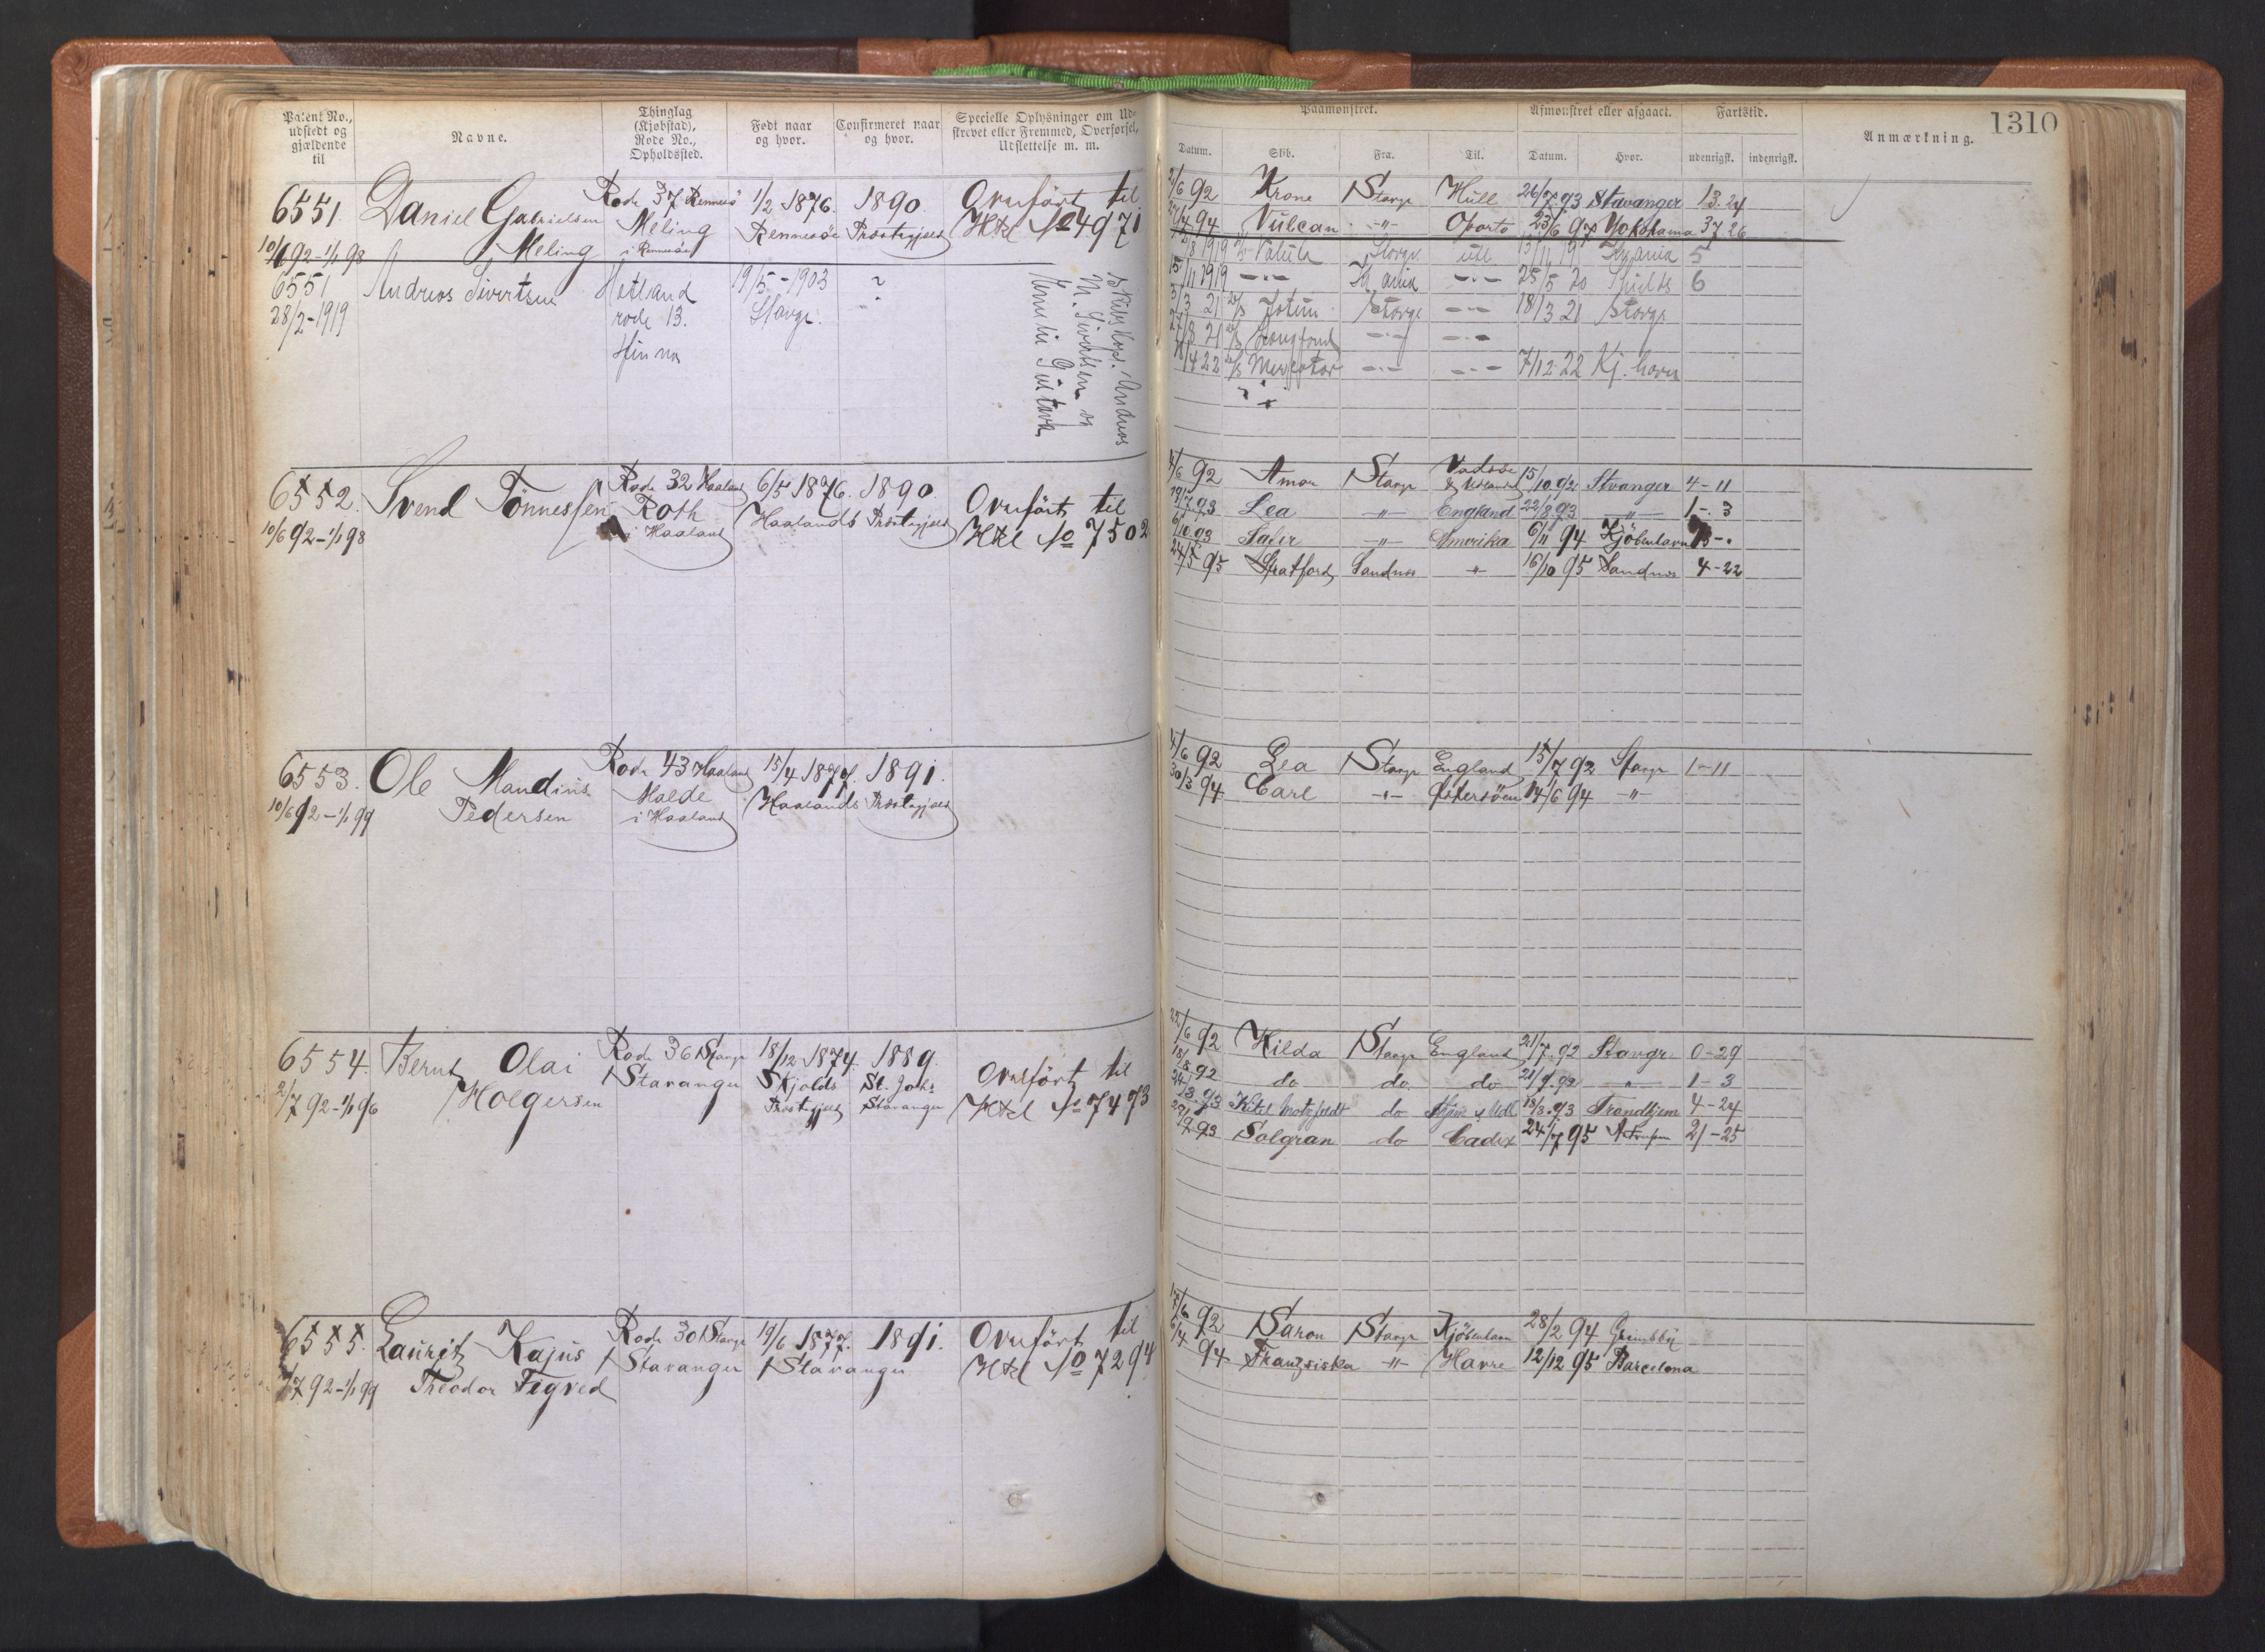 1310
Patent No., udstedt og gjældende til
Navne.
Thinglag (Kjøbstad), Rode No., Opholdssted.
Født naar og hvor.
Confirmeret naar og hvor.
Specielle Oplysninger om Udskrevet eller Fremmed, Overførsel, Udslettelse m. m.
Paamønstret.
Afmønstret eller afgaaet.
Fartstid.
Anmærkning.
Datum. Skib. Fra. Til. Datum. Hvor. udenrigsk. indenrigsk.
6551. Daniel Gabrielsen Rode 37 Rennesö 1/2 1876. 1890. Overført til
10/6 92-1/1 98 Meling Meling i Rennesö Rennesöe Præstegjæld Htel No 4971
2/6 92 Krone Stavgr Hull 26/7.93 Stavanger 13.24
94 Vulcan -"- Oporto 23/6 97 Yokohama 37.26
6551 Andreas Sivertsen Hetland 19/5.-1903 ?
28/2-1919 rode 13. Stavgr.
Hinna
Andreas
M. Sivertsen og
Emelie Gustava
1919 Stavgr. utl 13/11 19 Kr ania 5
15/11 1919 -"- Kr ania -"- 25/5 20 Shields 6
3/3 21 Jotun Stavgr -"- 18/3 21 Stavgr
27/8 21 -"- -"-
4 22 Mercator -"- -"- 7/12.22 Kj. havn
6552. Svend Tönnessen Rode 32 Haaland 6/5 1876. 1890. Overført til
10/6 92-1/1 98 Roth i Haaland Haalands Præstegjæld Htel No 7502
4/6 92 Amor Stavgr Vadsøe & Udlandet 15/10.92 Stvanger 4-11
19/7.93 Lea -"- England 22/8.93 -"- 1-.3
6/10.93 -"- Amerika 6/11 94 Kjöbenhavn
24/5 95 Stratford Sandnes -"- 16/10 95 Sandnes 4-22
6553. Ole Mandius Rode 43 Haaland 15/4 1877. 1891.
10/6 92-1/1 99 Pedersen Malde i Haaland Haalands Præstegjæld
4/6 92 Lea Stavgr England 15/7 92 Stavgr 1-11
30/3.94 Carl -"- Østersöen 14/6 94 -"-
6554. Bernt Olai Rode 36 Stavgr 18/12 1874. 1889. Overført til
2/7 92-1/1 96 Holgersen Stavanger Skjolds Præstegjæld St. Johs Stavanger Htel No 7473
22/6 92 Hilda Stavgr England 21/7.92 Stavgr. 0-29
18/8.92 do do do 21/9.92 -"- 1-3
24/3.93 do 18/3.93 Trondhjem 4-24
29/9.93 Solgran do Cadix 24/7 95 21-25
6555. Laurits Kajus Rode 30 Stavgr 19/6 1877. 1891. Overført til
1/7.92-1/1 99 Theodor Tegred Stavanger Stavanger Htel No 7294
17/6 92 Saron Stavgr Kjöbenhavn 28/2 94 Grimsby
6/4 94 Franzsiska -"- Havre 12/12 95 Barcelona